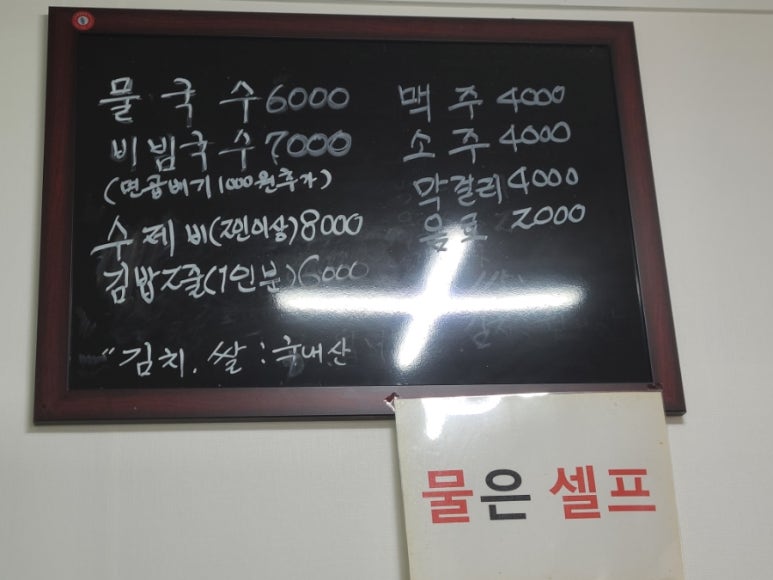 물국수 6000
비빔국수 7000
(면곱배기 1000원추가)
수제비(2인이상) 8000
김밥 2줄(1인분) 6000
"김치. 쌀 : 국내산
맥주 4000
소주 4000
막걸리 4000
음료 2000
물은 셀프